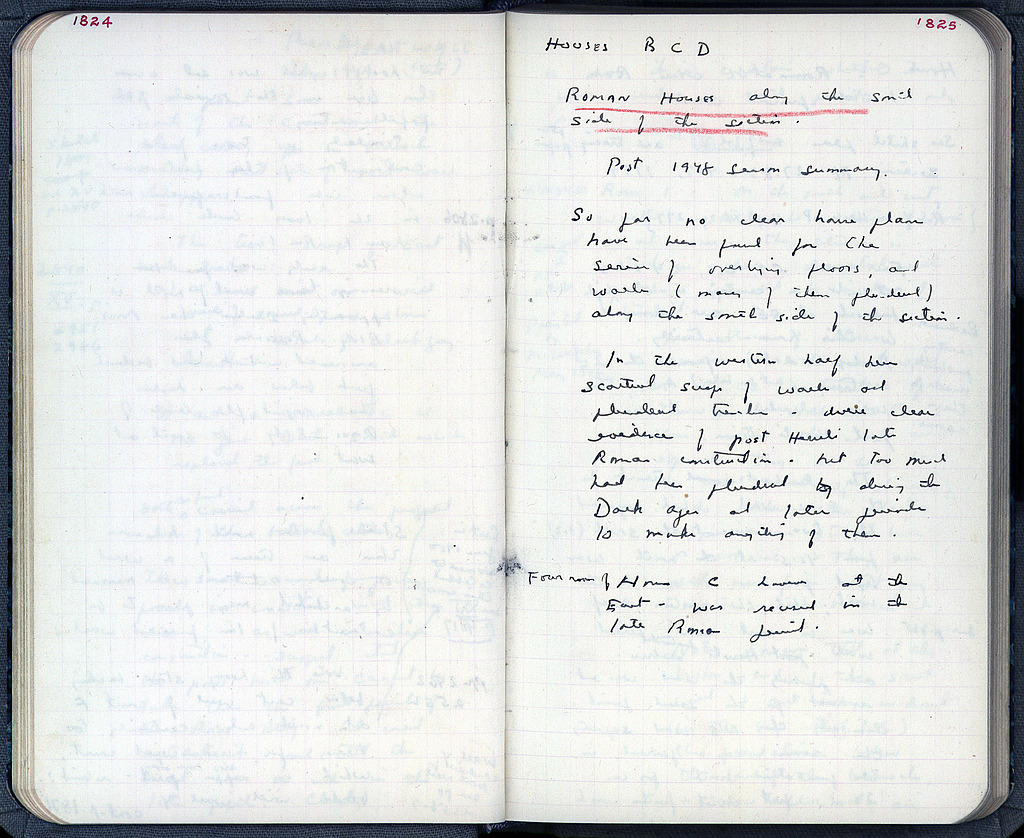 1824
1825
HOUSES B C D
ROMAN HOUSES along the south
side of the section.
Post 1948 season summary.
So far no clear house plans
have been found for the
series of overlying floors, and
walls (many of them plundered)
along the south side of the section.
In the western half are
scattered scraps of walls and
plundered trenches - clear
evidence of post Heruli late
Roman construction - but too much
had been plundered by during the
Dark Ages and later periods
to make anything of them.
Four rooms of House C known at the
East - was reused in the
late Roman period.